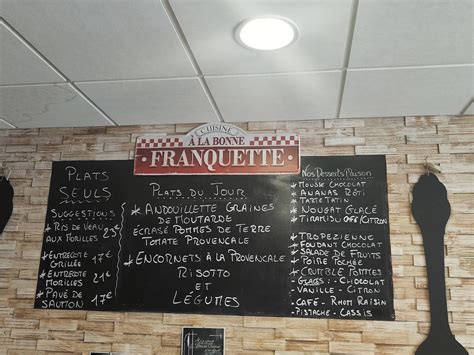 CUISINE
À LA BONNE
FRANQUETTE
PLATS
SEULS
SUGGESTIONS
* RIS DE VEAU 23€
AUX MORILLES
* ENTRECOTE 17€
GRILLÉE
* ENTRECOTE
MORILLES 21€
* PAVÉ DE
SAUMON 17€
PLATS DU JOUR
* ANDOUILLETTE GRAINES
DE MOUTARDE
ECRASÉ POMMES DE TERRE
TOMATE PROVENCALE
* ENCORNETS À LA PROVENCALE
RISOTTO
ET
LÉGUMES
NOS DESSERTS MAISON
* MOUSSE CHOCOLAT
* ANANAS RÔTI
* TARTE TATIN
* NOUGAT GLACÉ
* TIRAMISU CAFÉ/CITRON
* TROPEZIENNE
* FONDANT CHOCOLAT
* SALADE DE FRUITS
* POIRE POCHÉE
* CRUMBLE POMMES
- GLACES : CHOCOLAT
- VANILLE - CITRON
- CAFÉ - RHUM RAISIN
- PISTACHE - CASSIS